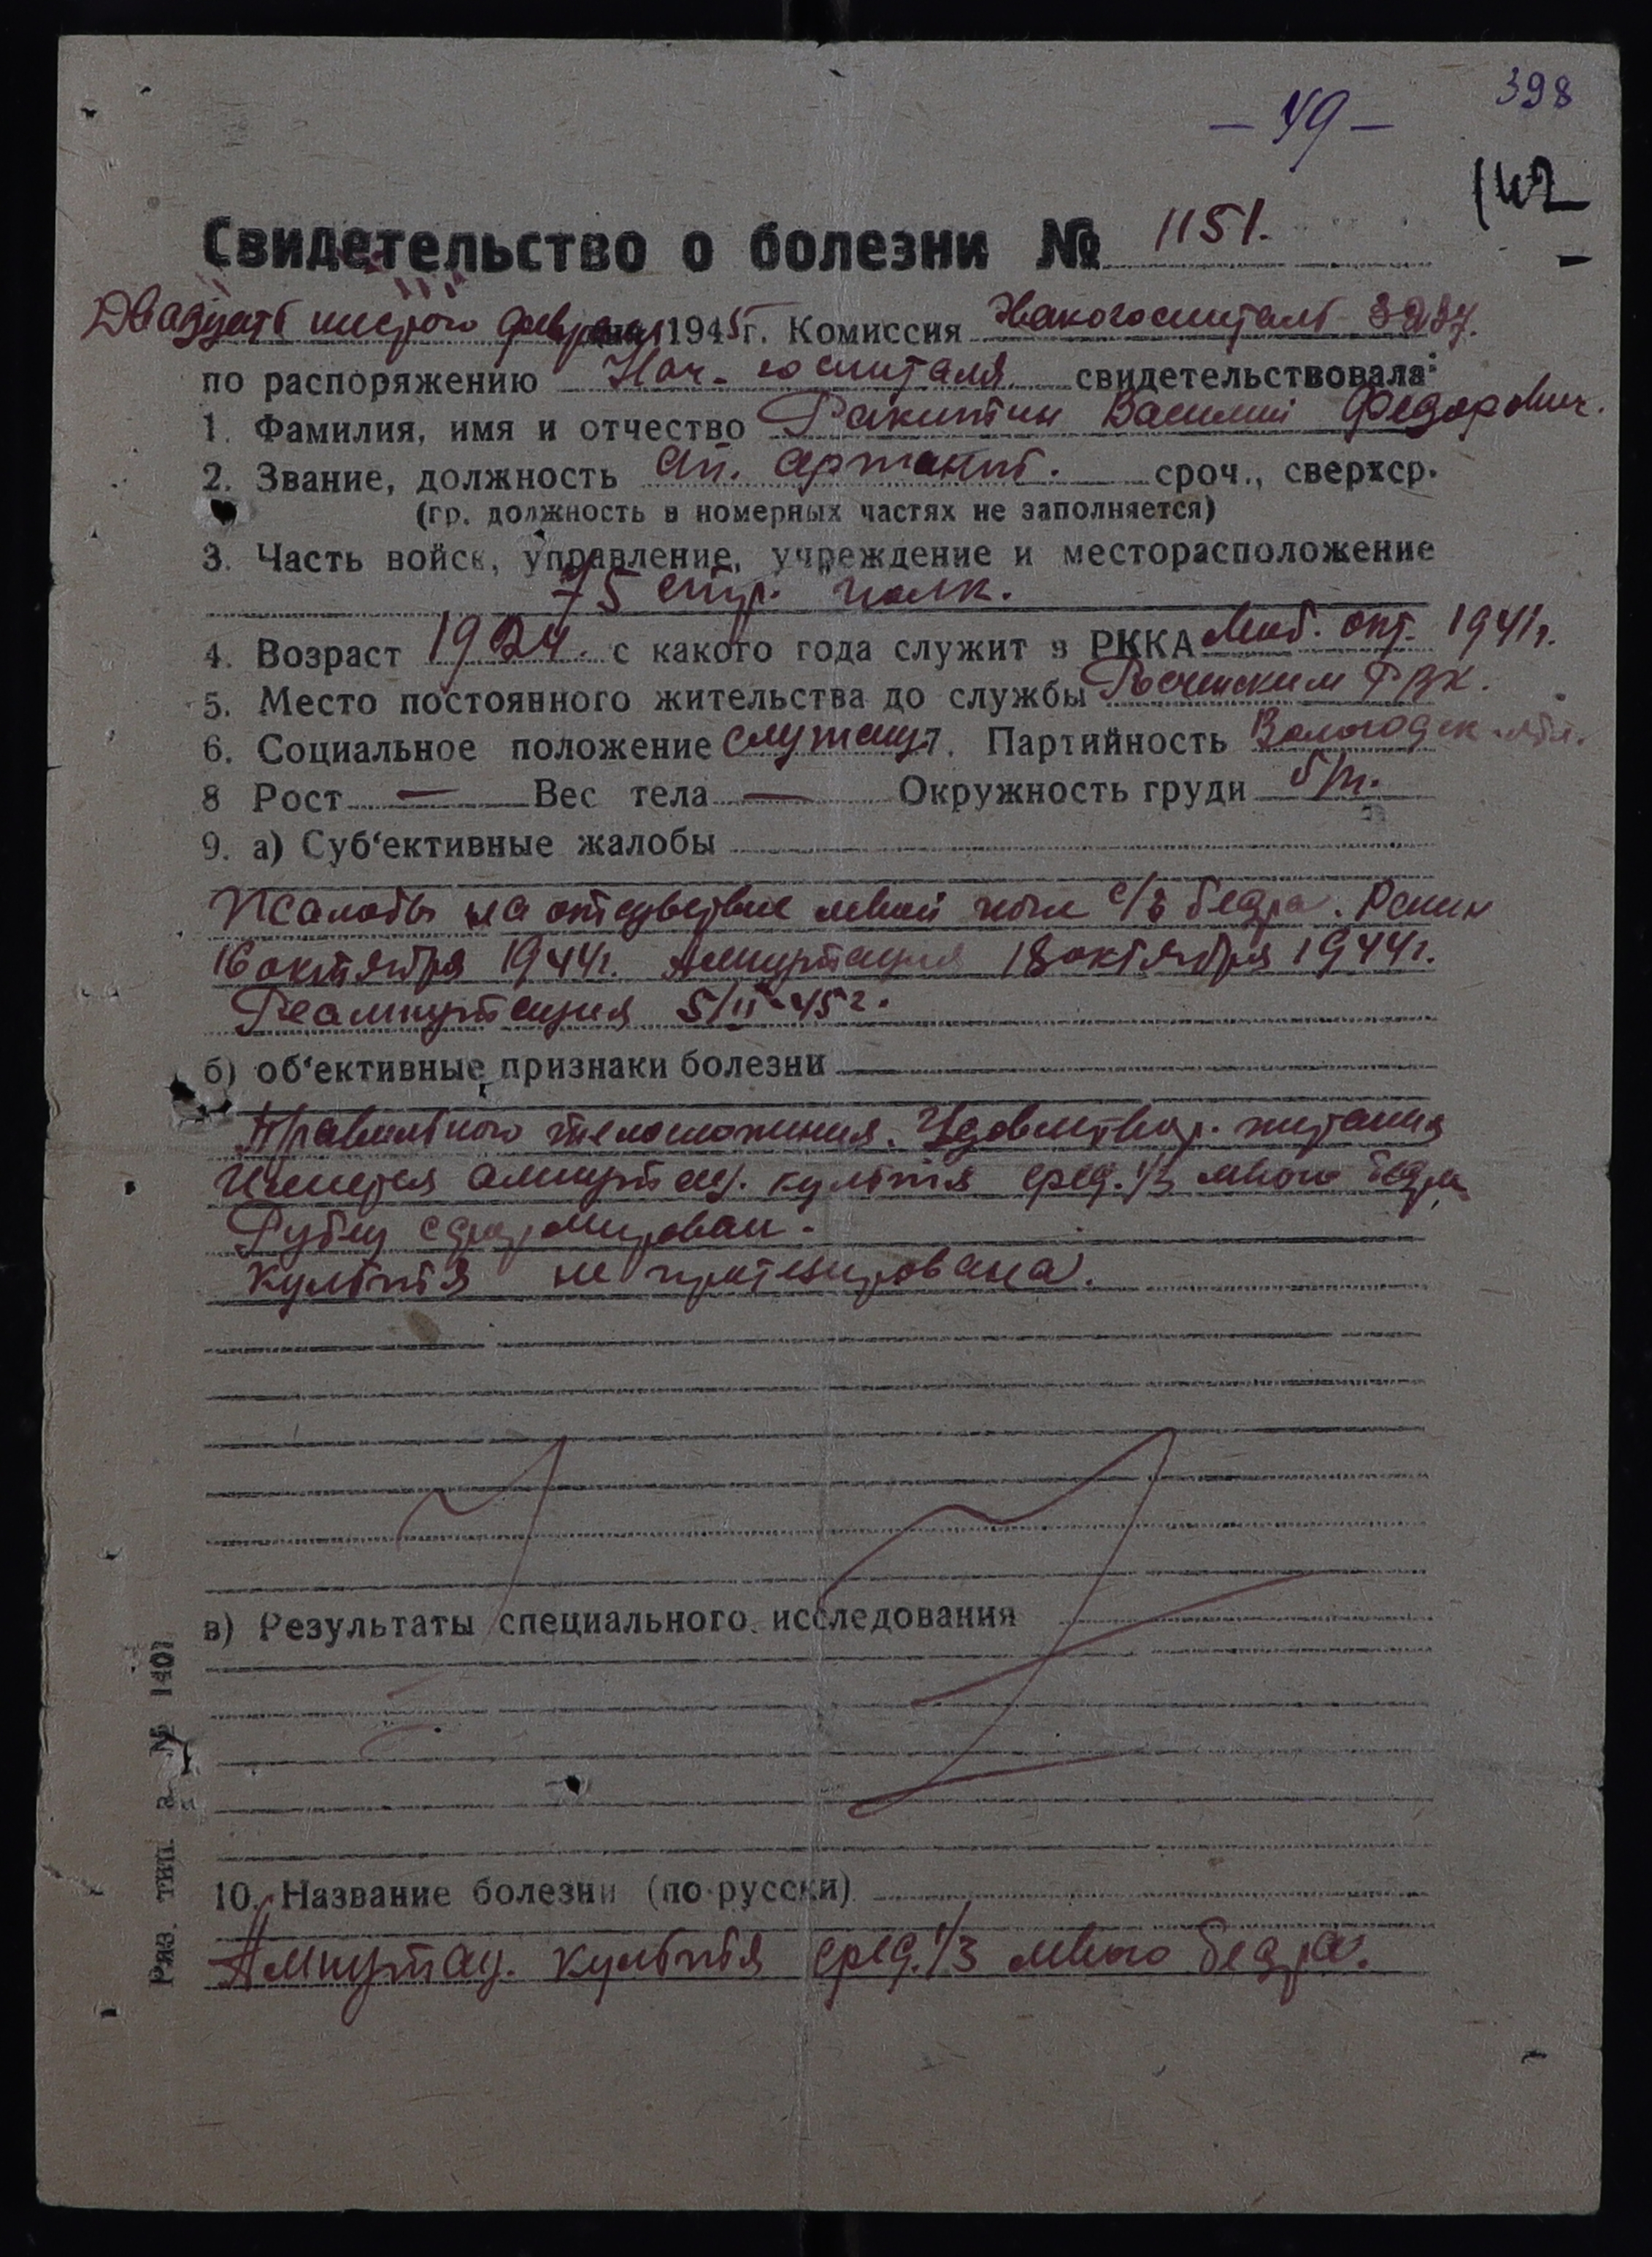 398
– 49 –
142
Свидетельство о болезни № 1151.
Двадцать шестого февраля 1945 г. Комиссия Эвакогоспиталь
по распоряжению Нач. госпиталя свидетельствовала:
1. Фамилия, имя и отчество Ракитин Василий Федорович.
2. Звание, должность ст. сержант. сроч., сверхср.
(гр. должность в номерных частях не заполняется)
3. Часть войск, управление, учреждение и месторасположение
75 стр. полк.
4. Возраст 1924. с какого года служит в РККА Моб. окт. 1941г.
5. Место постоянного жительства до службы РВК.
6. Социальное положение служащ 7. Партийность Вологодск. обл.
8 Рост — Вес тела — Окружность груди б/п.
9. а) Суб‘ективные жалобы
Жалобы на отсутствие левой ноги с/3 бедра. Ранен
16 октября 1944г. Ампутация 18 октября 1944г.
Реампутация 5/II-45г.
б) об‘ективные признаки болезни
Правильного телосложения. Удовлетвор. питания
Имеется ампутац. культя сред. 1/3 левого бедра
Рубец сформирован.
Культя не протезирована.
в) Результаты специального исследования
10. Название болезни (по-русски)
Ампутац. культя сред. 1/3 левого бедра.
Ряз. тип. з. № 1401